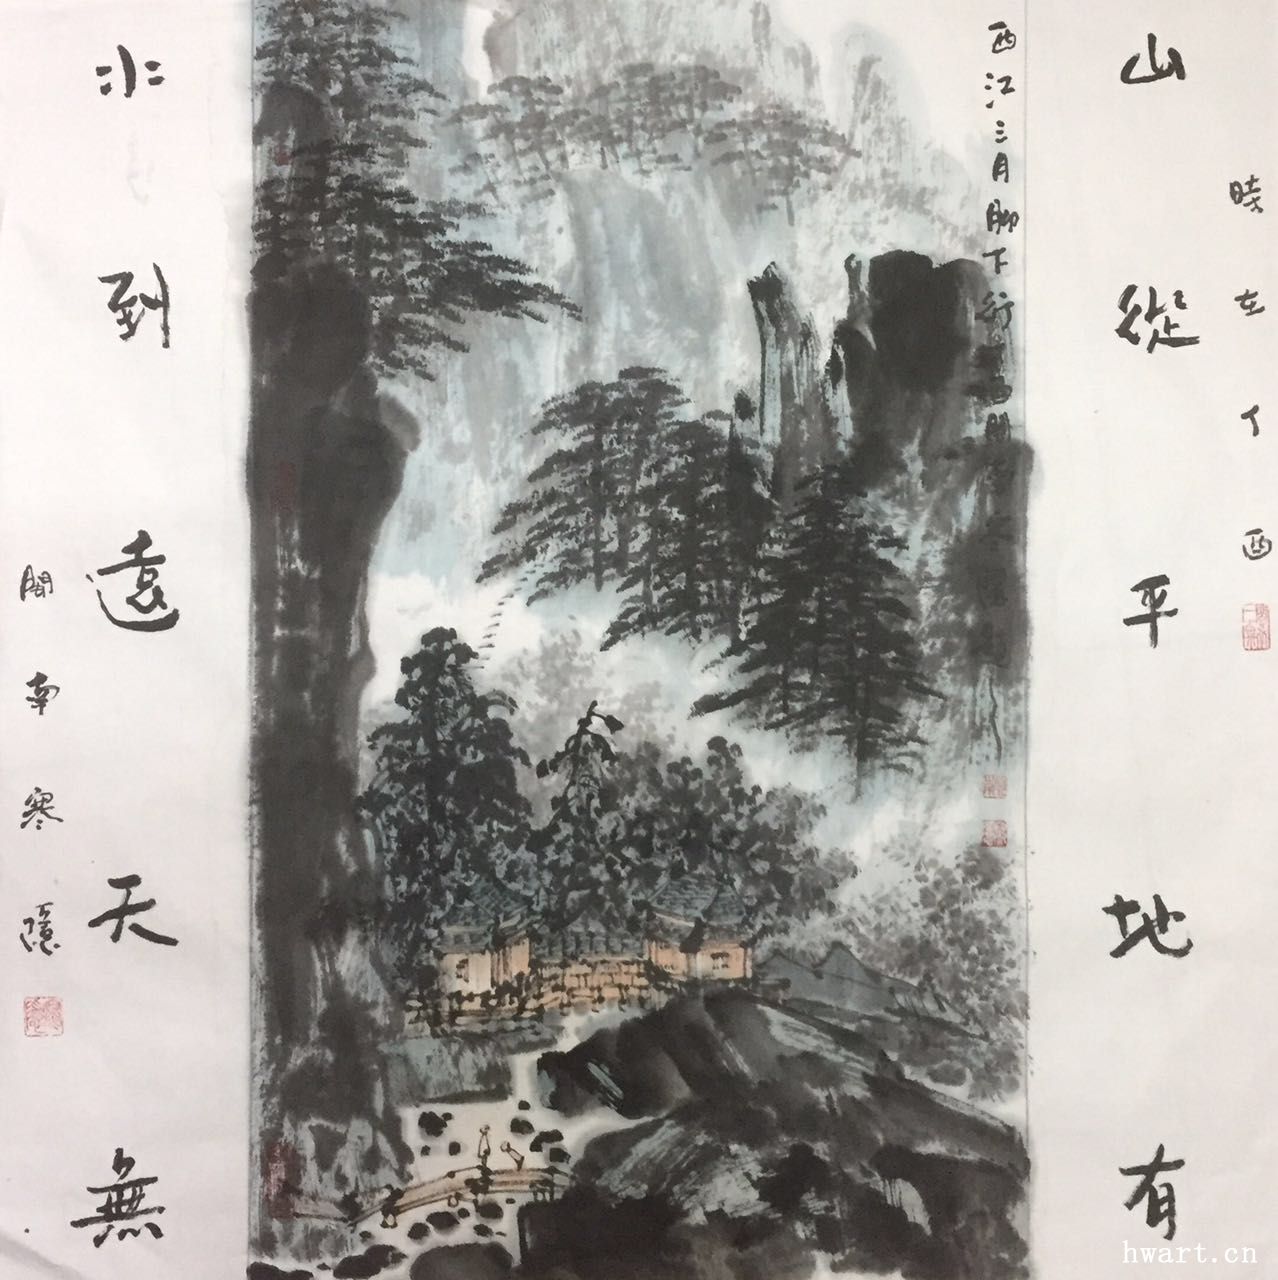 時在丁酉
山從平地有
西江三月腳下行
水到遠天無
南寒隱
hwart.cn